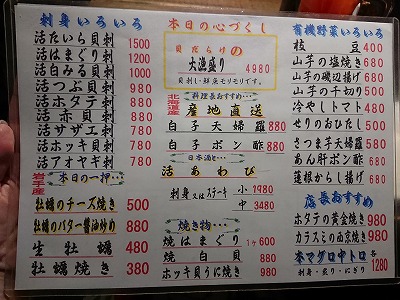 刺身いろいろ
活たいら貝刺 1500
活はまぐり刺 1200
白みる貝刺 1100
活つぶ貝刺 980
活ホタテ刺 880
活赤貝刺 880
活サザエ刺 780
活ホッキ貝刺 780
活アオヤギ刺 780
岩手産
本日の一押…
牡蠣のチーズ焼き 500
牡蠣のバター醤油炒め 880
生牡蠣 480
牡蠣焼き 380
本日の心づくし
貝だらけの
大漁盛り 4980
貝刺し・鮮魚モリモリです。
料理長おすすめ…
北海道産
産地直送
白子天婦羅 880
白子ポン酢 880
日本酒と…
活あわび
刺身又はステーキ 小 1980
中 3480
焼き物…
焼はまぐり 1ヶ 600
焼白貝 880
ホッキ貝うに焼き 980
有機野菜いろいろ
枝豆 400
山芋の塩焼き 680
山芋の磯辺揚げ 680
山芋の千切り 500
冷やしトマト 480
せりのおひたし 500
さつま芋天婦羅 580
あん肝ポン酢 680
蓮根からし揚げ 680
店長おすすめ
ホタテの黄金焼き 980
カラスミの西京焼き 980
本マグロ中トロ 各
刺身・炙り・にぎり 1280